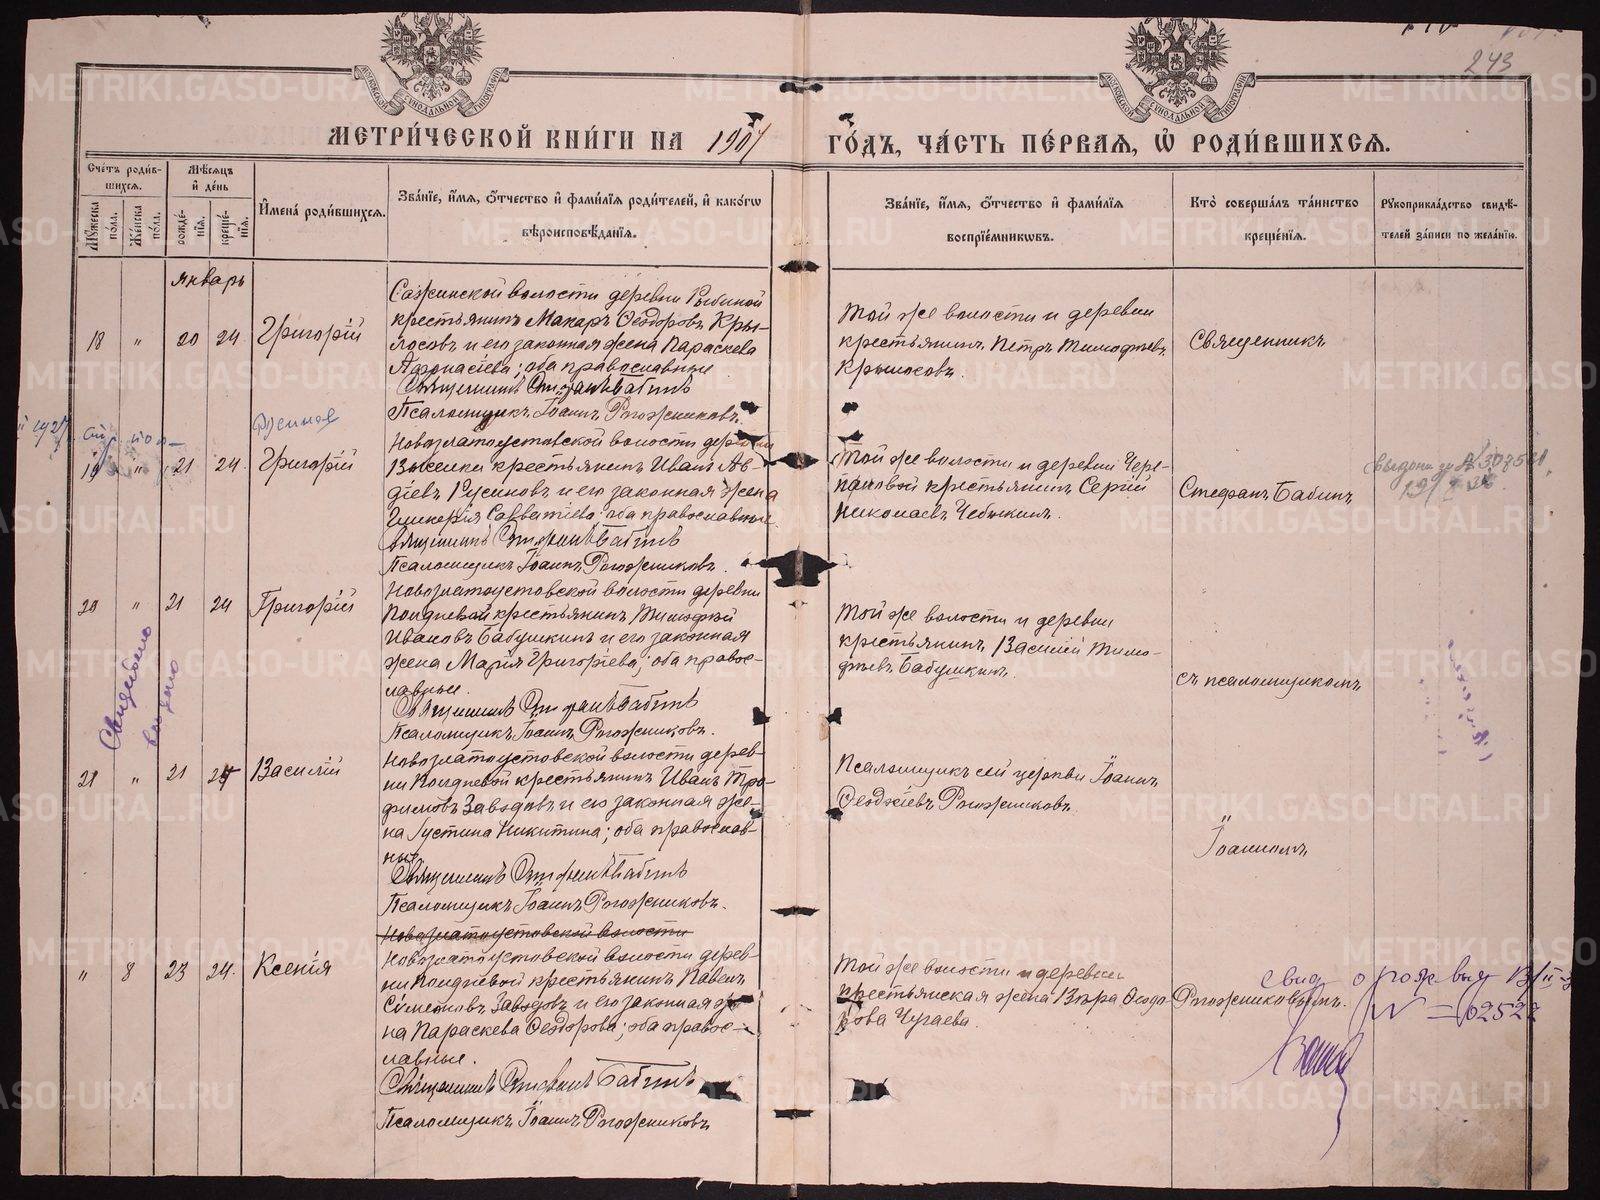 243
МЕТРИ́ЧЕСКОЙ КНИ́ГИ НА 1907 ГО́ДЪ, ЧА́СТЬ ПЕ́РВАЯ, Ѡ҆ РОДИ́ВШИХСЯ.
Сче́тъ роди́вшихся.
Мꙋ́жеска по́ла.
Же́нска по́ла.
Мѣ́сяцъ и҆ де́нь
рожде́нїя.
креще́нїя.
И҆мена̀ роди́вшихся.
Зва́нїе, и҆́мя, ѻ҆́тчество и҆ фами́лїя роди́телей, и҆ како́гѡ
вѣроисповѣ́данїя.
Зва́нїе, и҆́мя, ѻ҆́тчество и҆ фами́лїя
воспрїе́мникѡвъ.
Кто̀ соверша́лъ та́инство
креще́нїя.
Рꙋкоприкла́дство свидѣ́-
телей за́писи по жела́нїю.
Январь
18 " 20 24 Григорій
Сажинской волости деревни Рыбиной
крестьянинъ Макаръ Ѳеодоровъ Кры-
лосовъ и его законная жена Параскева
Аѳонасіева; оба православные
Священникъ Стефанъ Бабинъ
Псаломщикъ Іоаннъ Рогожниковъ.
Той же волости и деревни
крестьянинъ Петръ Тимоѳіевъ
Крылосовъ.
Священникъ
Русинов
19 " 21 24 Григорій
Новозлатоустовской волости деревни
Выселки крестьянинъ Иванъ Ав-
діевъ Русиновъ и его законная жена
Гликерія Савватіева; оба православные.
Священникъ Стефанъ Бабинъ
Псаломщикъ Іоаннъ Рогожниковъ.
Той же волости и деревни Чере-
пановой крестьянинъ Сергій
Николаевъ Чебыкинъ.
Стефанъ Бабинъ
20 " 21 24 Григорій
Новозлатоустовской волости деревни
Полдневой крестьянинъ Тимоѳей
Ивановъ Бабушкинъ и его законная
жена Марія Григоріева; оба правос-
лавные.
Священникъ Стефанъ Бабинъ
Псаломщикъ Іоаннъ Рогожниковъ.
Той же волости и деревни
крестьянинъ Василій Тимо-
ѳіевъ Бабушкинъ.
съ псаломщикомъ
Свидѣтельство
выдано
21 " 21 24 Василій
Новозлатоустовской волости дерев-
ни Полдневой крестьянинъ Иванъ Тро-
фимовъ Заводовъ и его законная же-
на Іустина Никитина; оба православ-
ные.
Священникъ Стефанъ Бабинъ
Псаломщикъ Іоаннъ Рогожниковъ.
Псаломщикъ сей церкви Іоаннъ
Ѳеодосіевъ Рогожниковъ.
Іоанномъ
Новозлатоустовской волости
" 8 23 24. Ксенія
Новозлатоустовской волости дерев-
ни Полдневой крестьянинъ Павелъ
Симеоновъ Заводовъ и его законная же-
на Параскева Ѳеодорова; оба правос-
лавные.
Священникъ Стефанъ Бабинъ
Псаломщикъ Іоаннъ Рогожниковъ
Той же волости и деревни
крестьянская жена Вѣра Ѳеодо-
рова Чугаева.
Рогожниковымъ.
METRIKI.GASO-URAL.RU